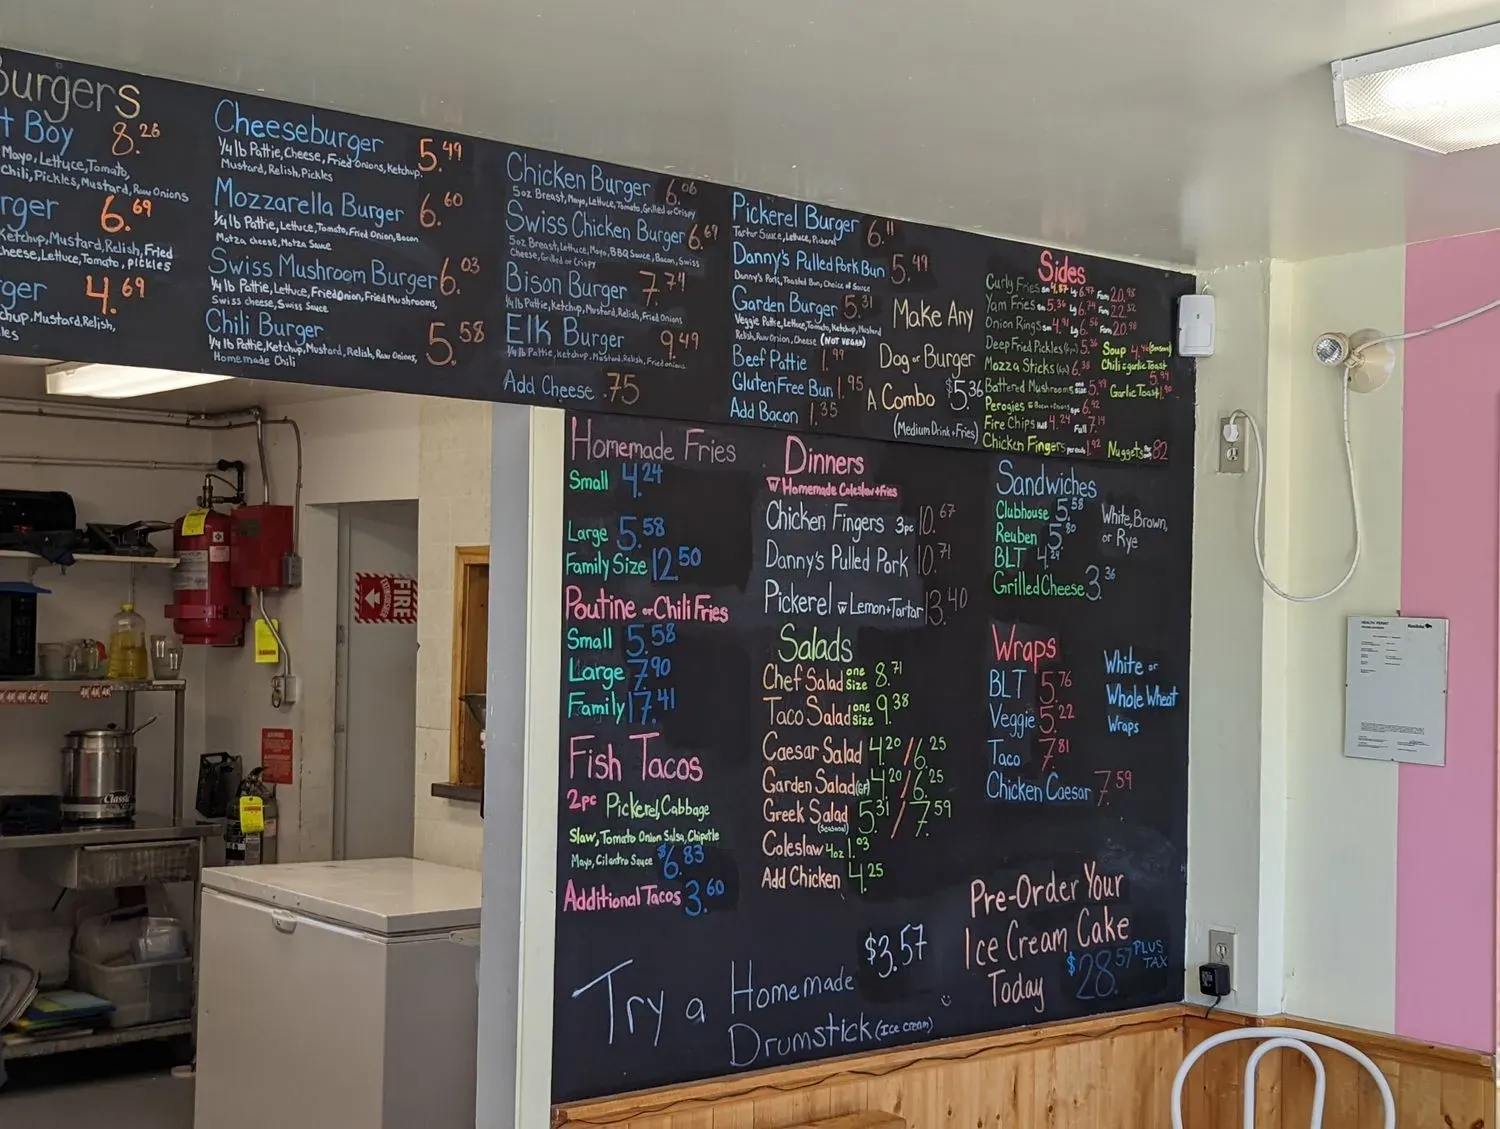 Burgers
t Boy 8.26
Mayo, Lettuce, Tomato,
Chili, Pickles, Mustard, Raw Onions
rger 6.69
Ketchup, Mustard, Relish, Fried
heese, Lettuce, Tomato, pickles
rger 4.69
chup, Mustard, Relish,
les
Cheeseburger 5.49
1/4 lb Pattie, Cheese, Fried Onions, Ketchup,
Mustard, Relish, Pickles
Mozzarella Burger 6.60
1/4 lb Pattie, Lettuce, Tomato, Fried Onion, Bacon
Motza cheese, Motza Sauce
Swiss Mushroom Burger 6.03
1/4 lb Pattie, Lettuce, Fried Onion, Fried Mushrooms,
Swiss cheese, Swiss Sauce
Chili Burger 5.58
1/4 lb Pattie, Ketchup, Mustard, Relish, Raw Onions,
Homemade Chili
Chicken Burger 6.06
5oz Breast, Mayo, Lettuce, Tomato, Grilled or Crispy
Swiss Chicken Burger 6.69
5oz Breast, Lettuce, Mayo, BBQ Sauce, Bacon, Swiss
Cheese, Grilled or Crispy
Bison Burger 7.74
1/4 lb Pattie, Ketchup, Mustard, Relish, Fried Onions
Elk Burger 9.49
1/4 lb Pattie, Ketchup, Mustard, Relish, Fried onions
Add Cheese .75
Pickerel Burger 6.11
Tartar Sauce, Lettuce, Pickerel
Danny's Pulled Pork Bun 5.49
Danny's Pork, Toasted Bun, Choice of Sauce
Garden Burger 5.31
Veggie Pattie, Lettuce, Tomato, Ketchup, Mustard
Relish, Raw Onion, Cheese (NOT VEGAN)
Beef Pattie 1.99
Gluten Free Bun 1.95
Add Bacon 1.35
Make Any
Dog or Burger
A Combo $5.36
(Medium Drink + Fries)
Sides
Curly Fries sm 4.87 Lg 6.97 Fam 20.98
Yam Fries sm 5.36 Lg 6.74 Fam 22.32
Onion Rings sm 4.91 Lg 6.56 Fam 20.98
Deep Fried Pickles 5.36
Soup 4.46 (Seasonal)
Mozza Sticks 6.38
Chili + garlic Toast 5.94
Battered Mushrooms one size 5.49
Garlic Toast 1.90
Perogies w Bacon + Onions 6pc 6.92
Fire Chips Half 4.24 Full 7.19
Chicken Fingers per each 1.92
Nuggets .82
Homemade Fries
Small 4.24
Large 5.58
Family Size 12.50
Poutine or Chili Fries
Small 5.58
Large 7.90
Family 17.41
Fish Tacos
2pc Pickerel, Cabbage
Slaw, Tomato Onion Salsa, Chipotle
Mayo, Cilantro Sauce $6.83
Additional Tacos 3.60
Dinners
w Homemade Coleslaw + Fries
Chicken Fingers 3pc 10.67
Danny's Pulled Pork 10.71
Pickerel w Lemon + Tartar 13.40
Salads
Chef Salad one Size 8.71
Taco Salad one Size 9.38
Caesar Salad 4.20 / 6.25
Garden Salad (GF) 4.20 / 6.25
Greek Salad 5.31 / 7.59
(Seasonal)
Coleslaw 4oz 1.03
Add Chicken 4.25
Sandwiches
Clubhouse 5.58
Reuben 5.80
BLT 4.24
Grilled Cheese 3.36
White, Brown,
or Rye
Wraps
BLT 5.76
Veggie 5.22
Taco 7.81
Chicken Caesar 7.59
White or
Whole Wheat
Wraps
Try a Homemade $3.57
Drumstick (Ice cream)
Pre-Order Your
Ice Cream Cake
Today $28.57 PLUS TAX
FIRE
EXTINGUISHER
Classic
HEALTH PERMIT
Manitoba